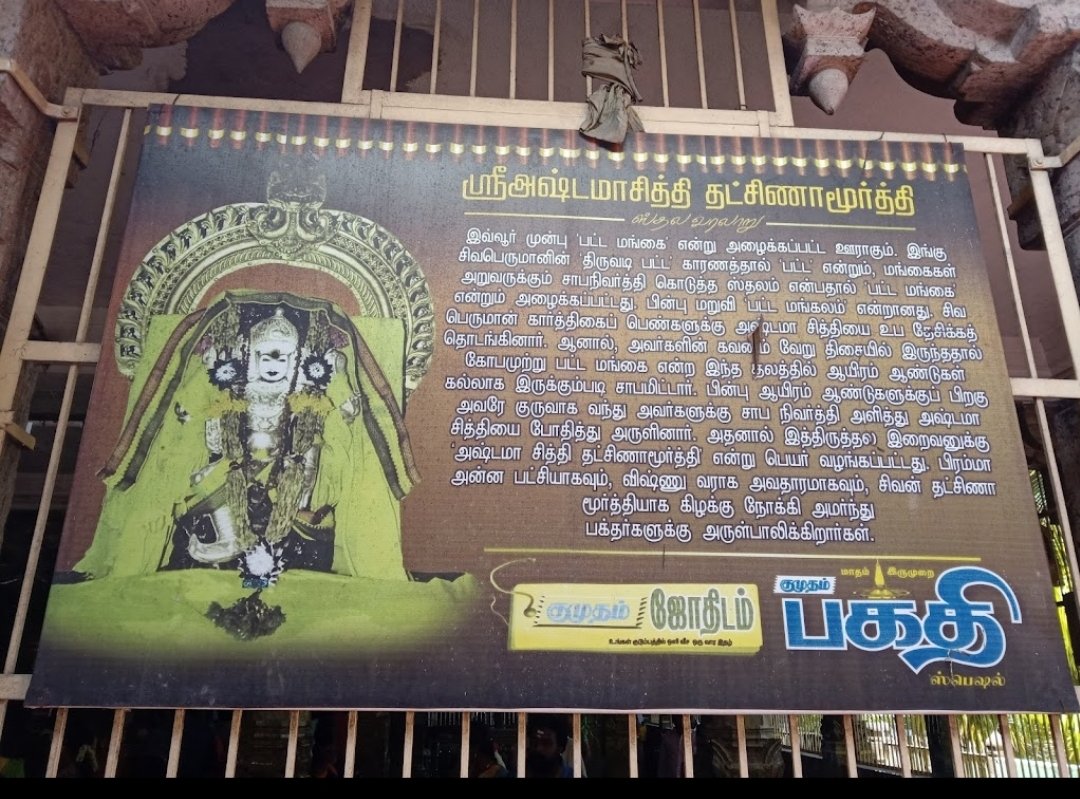 ஸ்ரீஅஷ்டமாசித்தி தட்சிணாமூர்த்தி
ஸ்தல வரலாறு
இவ்வூர் முன்பு 'பட்ட மங்கை' என்று அழைக்கப்பட்ட ஊராகும். இங்கு
சிவபெருமானின் 'திருவடி பட்ட' காரணத்தால் 'பட்ட' என்றும், மங்கைகள்
அறுவருக்கும் சாபநிவர்த்தி கொடுத்த ஸ்தலம் என்பதால் 'பட்ட மங்கை'
என்றும் அழைக்கப்பட்டது. பின்பு மறுவி 'பட்ட மங்கலம்' என்றானது. சிவ
பெருமான் கார்த்திகைப் பெண்களுக்கு அஷ்டமா சித்தியை உப தேசிக்கத்
தொடங்கினார். ஆனால், அவர்களின் கவனம் வேறு திசையில் இருந்ததால்
கோபமுற்று பட்ட மங்கை என்ற இந்த தலத்தில் ஆயிரம் ஆண்டுகள்
கல்லாக இருக்கும்படி சாபமிட்டார். பின்பு ஆயிரம் ஆண்டுகளுக்குப் பிறகு
அவரே குருவாக வந்து அவர்களுக்கு சாப நிவர்த்தி அளித்து அஷ்டமா
சித்தியை போதித்து அருளினார். அதனால் இத்திருத்தல இறைவனுக்கு
'அஷ்டமா சித்தி தட்சிணாமூர்த்தி' என்று பெயர் வழங்கப்பட்டது. பிரம்மா
அன்ன பட்சியாகவும், விஷ்ணு வராக அவதாரமாகவும், சிவன் தட்சிணா
மூர்த்தியாக கிழக்கு நோக்கி அமர்ந்து
பக்தர்களுக்கு அருள்பாலிக்கிறார்கள்.
குமுதம் ஜோதிடம்
உங்கள் குடும்பத்தில் ஒளி வீச ஒரு வார இதழ்
மாதம் இருமுறை
குமுதம்
பக்தி
ஸ்பெஷல்